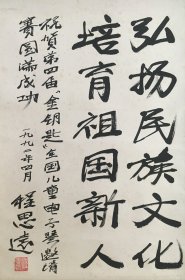 弘扬民族文化
培育祖国新人
祝贺第四届“金钥匙”全国儿童电子琴邀请
赛圆满成功
一九九一年四月
程思远